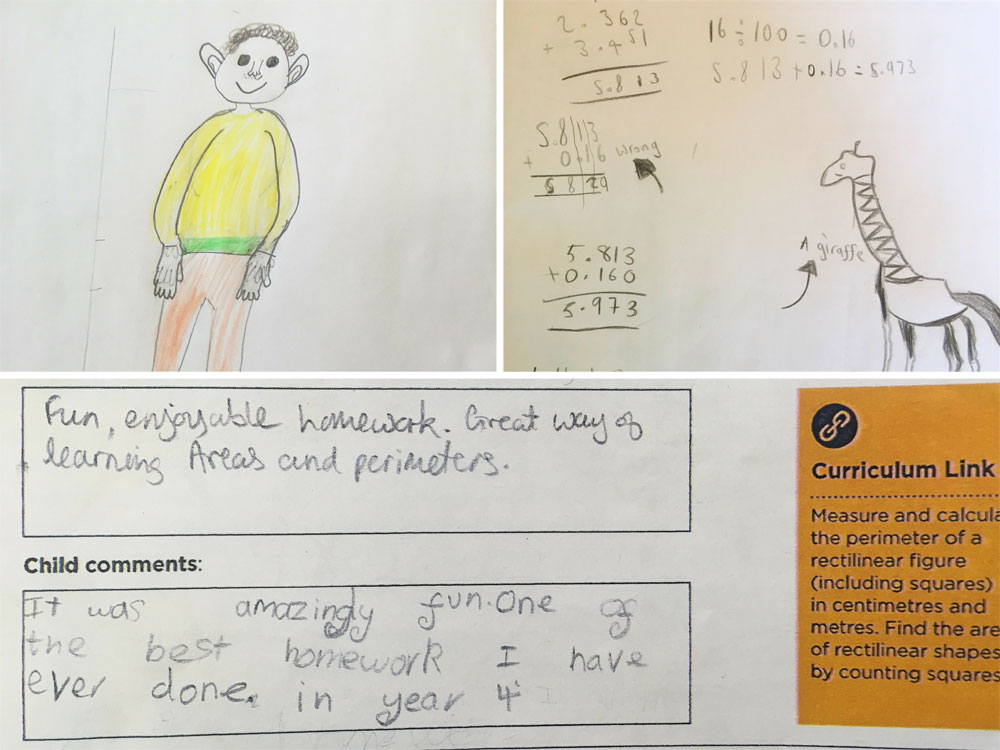 2.362
+ 3.451
5.813
16 ÷ 100 = 0.16
5.813 + 0.16 = 5.973
5.813
+ 0.16 wrong
5829
A giraffe
5.813
+0.160
5.973
Fun, enjoyable homework. Great way of
learning Areas and perimeters.
Child comments:
It was amazingly fun. One of
the best homework I have
ever done. in year 4
Curriculum Link
Measure and calcula
the perimeter of a
rectilinear figure
(including squares)
in centimetres and
metres. Find the are
of rectilinear shapes
by counting squares